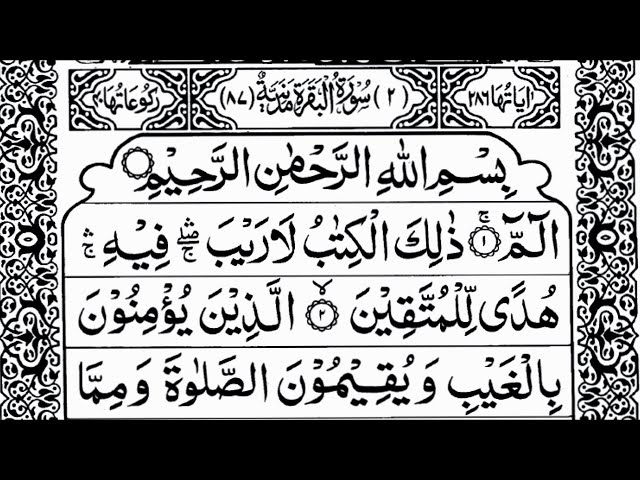 اٰیَاتُهَا ٢٨٦ (٢) سُوْرَةُ الْبَقَرَةِ مَدَنِیَّةٌ (٨٧) رُكُوْعَاتُهَا ٤٠
بِسْمِ اللّٰهِ الرَّحْمٰنِ الرَّحِیْمِ
الٓمّٓ ۚ ﴿١﴾ ذٰلِكَ الْكِتٰبُ لَا رَیْبَ ۛۖ فِیْهِ ۛۚ
هُدًی لِّلْمُتَّقِیْنَ ﴿٢﴾ الَّذِیْنَ یُؤْمِنُوْنَ
بِالْغَیْبِ وَ یُقِیْمُوْنَ الصَّلٰوةَ وَ مِمَّا